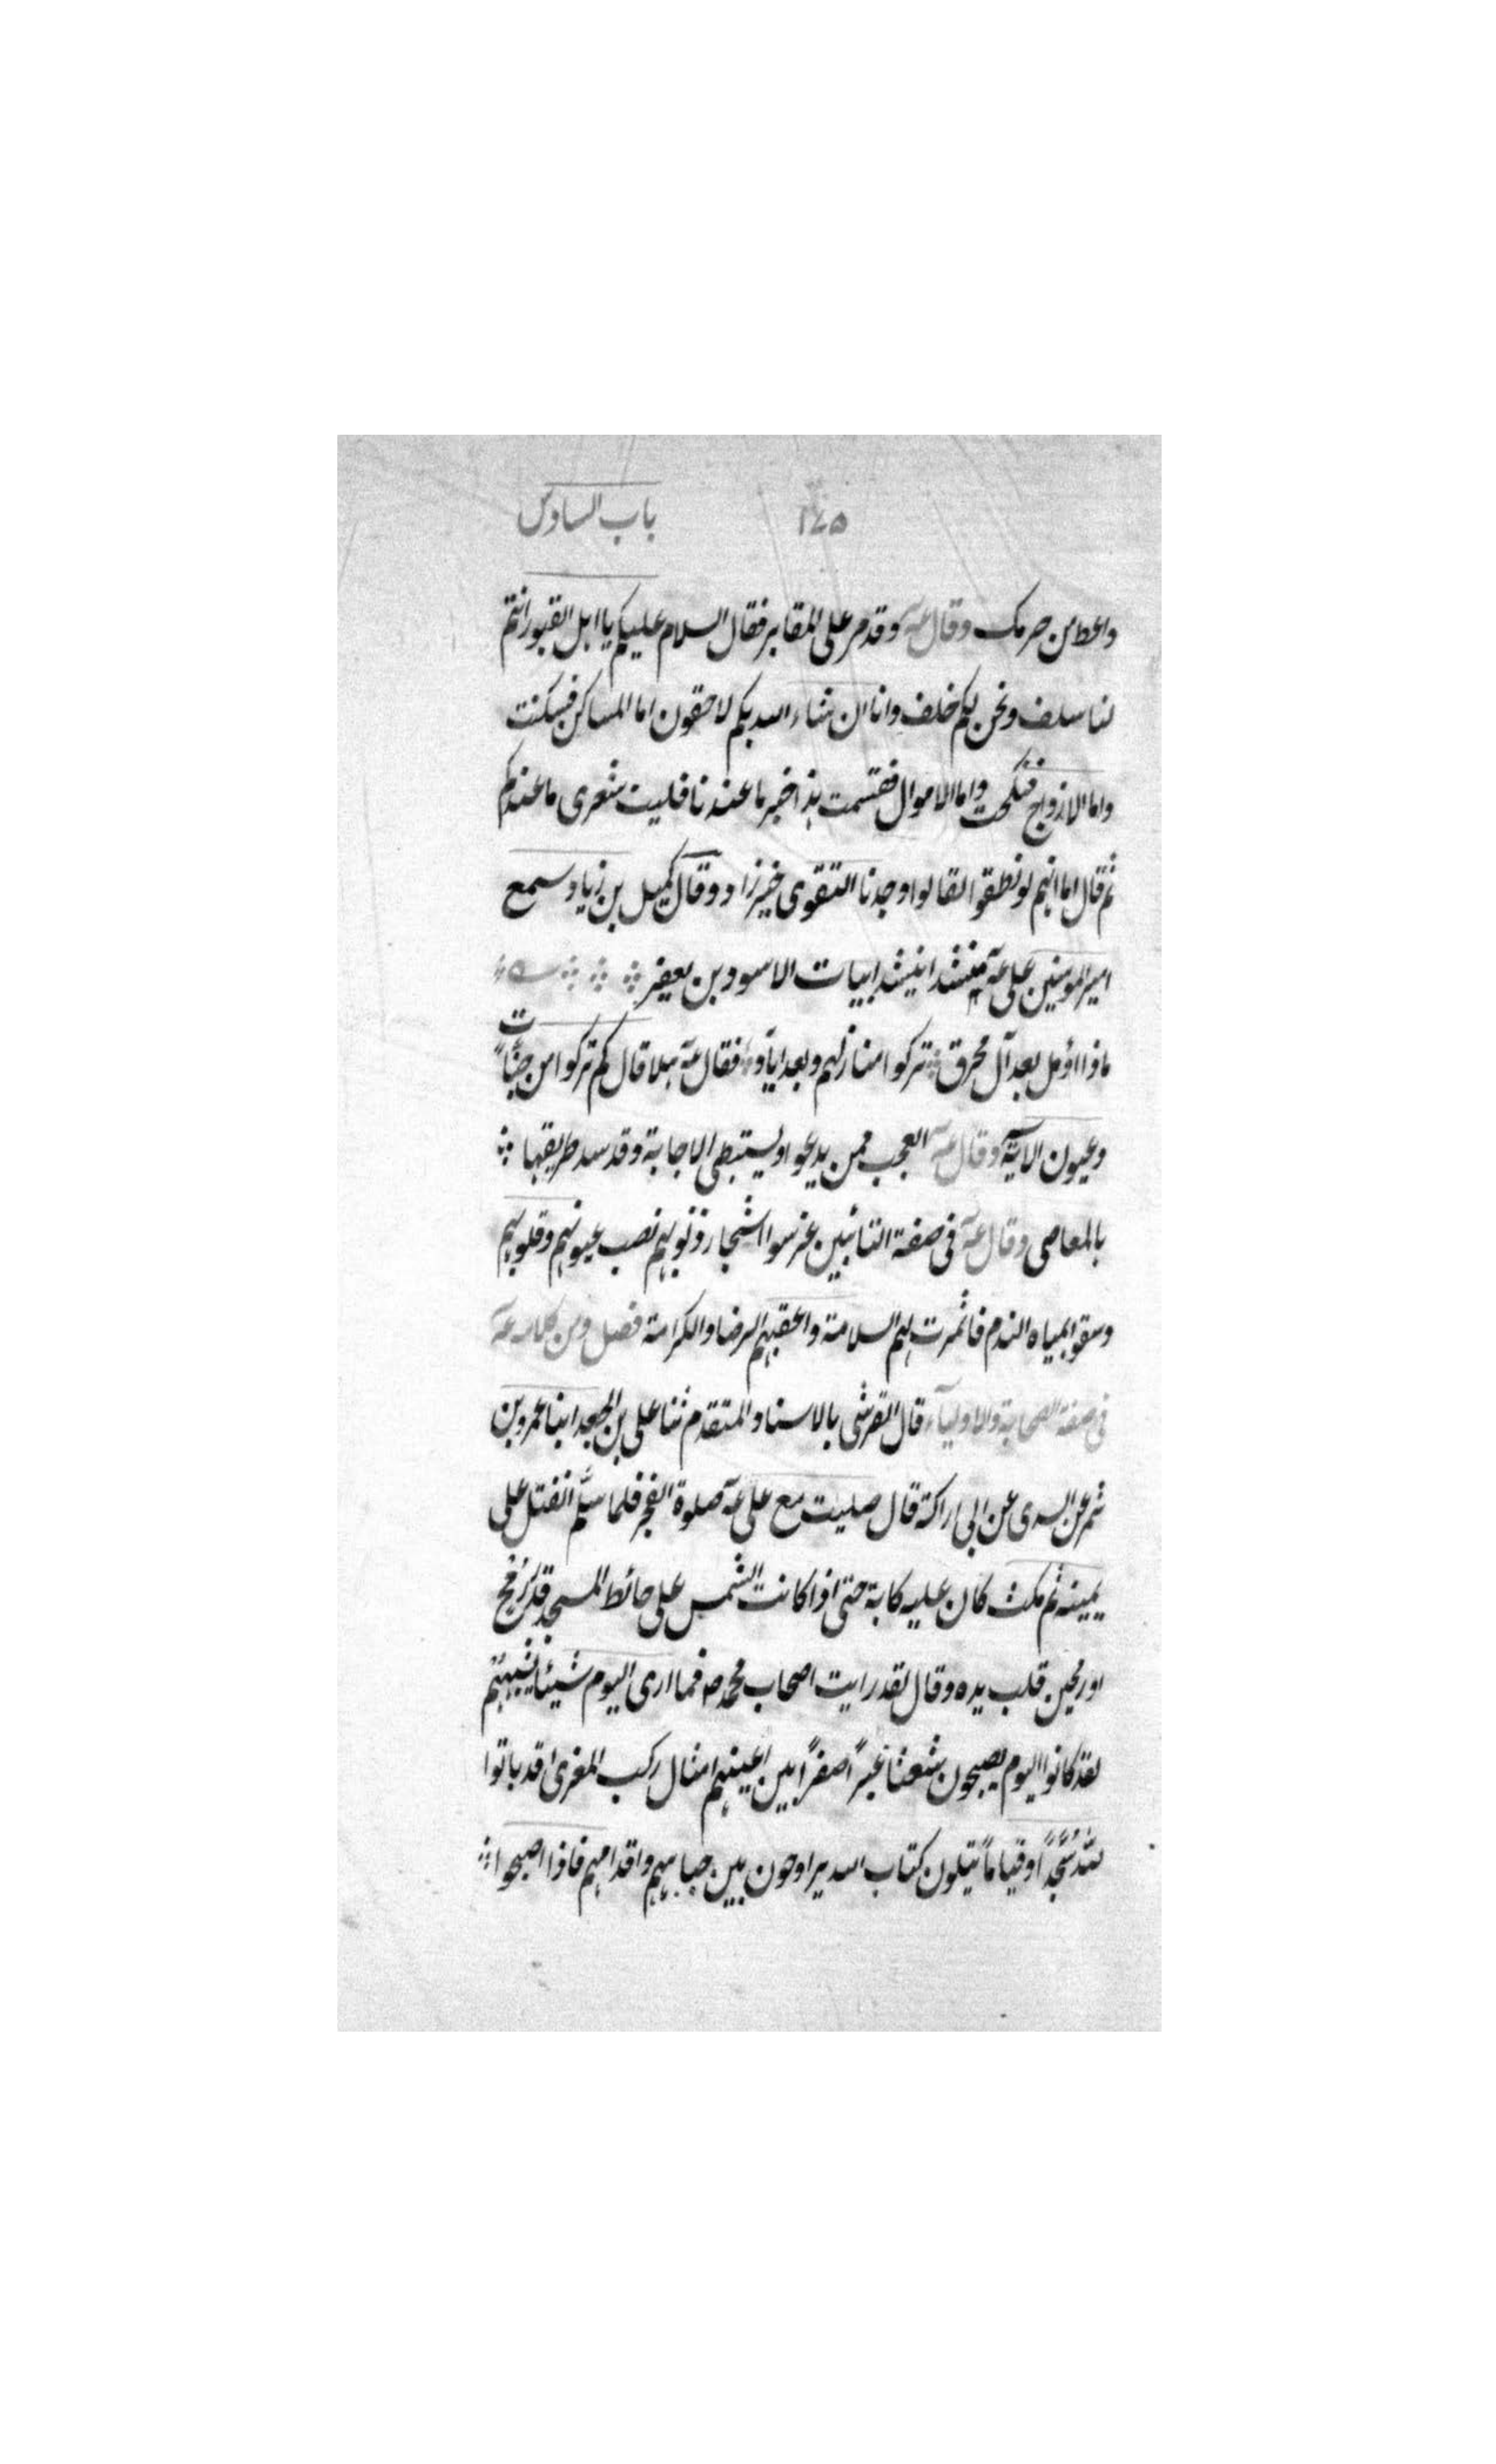 ١٤٥ باب السادس
واعط من حرمك وقال عه وقد مر على المقابر فقال السلام عليكم يا اهل القبور انتم
لنا سلف ونحن لكم خلف وانا ان شاء الله بكم لاحقون اما المساكن فسكنت
واما الازواج فنكحت واما الاموال فقسمت هذا خبر ما عندنا فليت شعرى ما عندكم
ثم قال اما انهم لو نطقوا لقالوا وجدنا التقوى خير زاد وقال كميل بن زياد سمع
امير المومنين على عه منشدا ينشد ابيات الاسود بن يعفر
ماذا اؤمل بعد آل محرق تركوا منازلهم وبعد اياد فقال عه هلا قال كم تركوا من جنات
وعيون الاية وقال عه العجب ممن يدعوا ويستبطى الاجابة وقد سد طريقها
بالمعاصى وقال عه فى صفة التائبين غرسوا اشجار ذنوبهم نصب عيونهم وقلوبهم
وسقوا بمياه الندم فاثمرت لهم السلامة واعقبهم الرضا والكرامة فصل ومن كلامه عه
فى صفة الصحابة والاولياء قال القرشى بالاسناد المتقدم ثنا على بن الجعد ابنا عمرو بن
شمر عن السدى عن ابى اراكة قال صليت مع على عه صلوة الفجر فلما سلّم انفتل على
يمينه ثم مكث كان عليه كابة حتى اذا كانت الشمس على حائط المسجد قدر رمح
او رمحين قلب يده وقال لقد رايت اصحاب محمد ص فما ارى اليوم شيئا يشبههم
لقد كانوا اليوم يصبحون شعثا غبرًا صفرًا بين اعينهم امثال ركب المغرى قد باتوا
لله سُجّدًا وقيامًا يتلون كتاب الله يراوحون بين جباههم واقدامهم فاذا اصبحوا